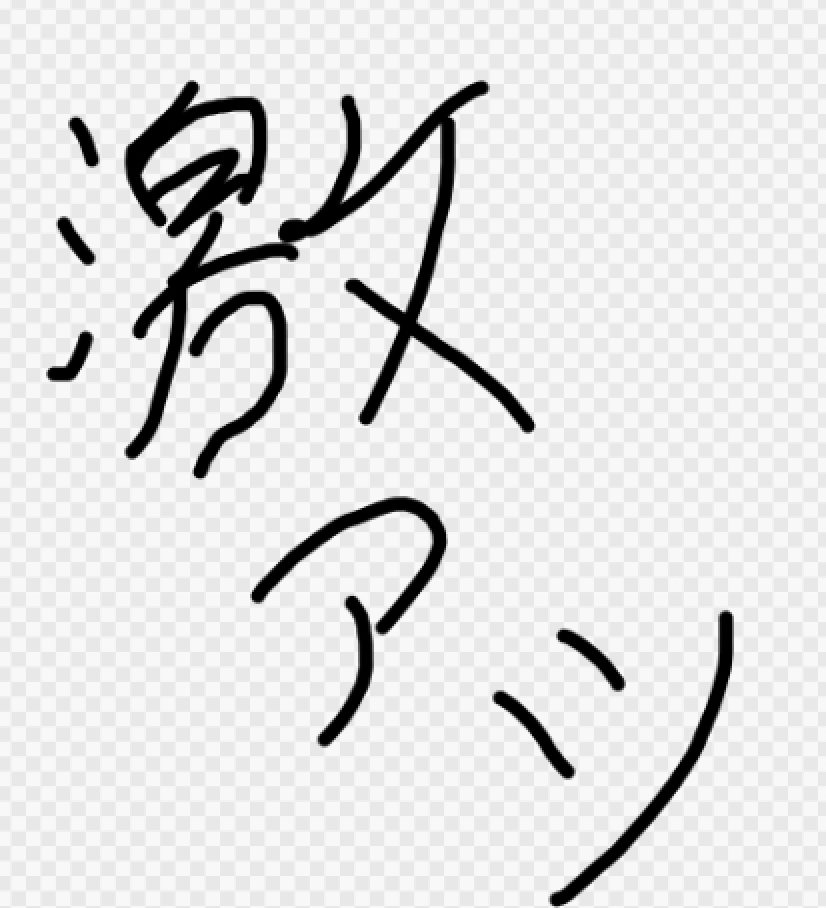 激アツ